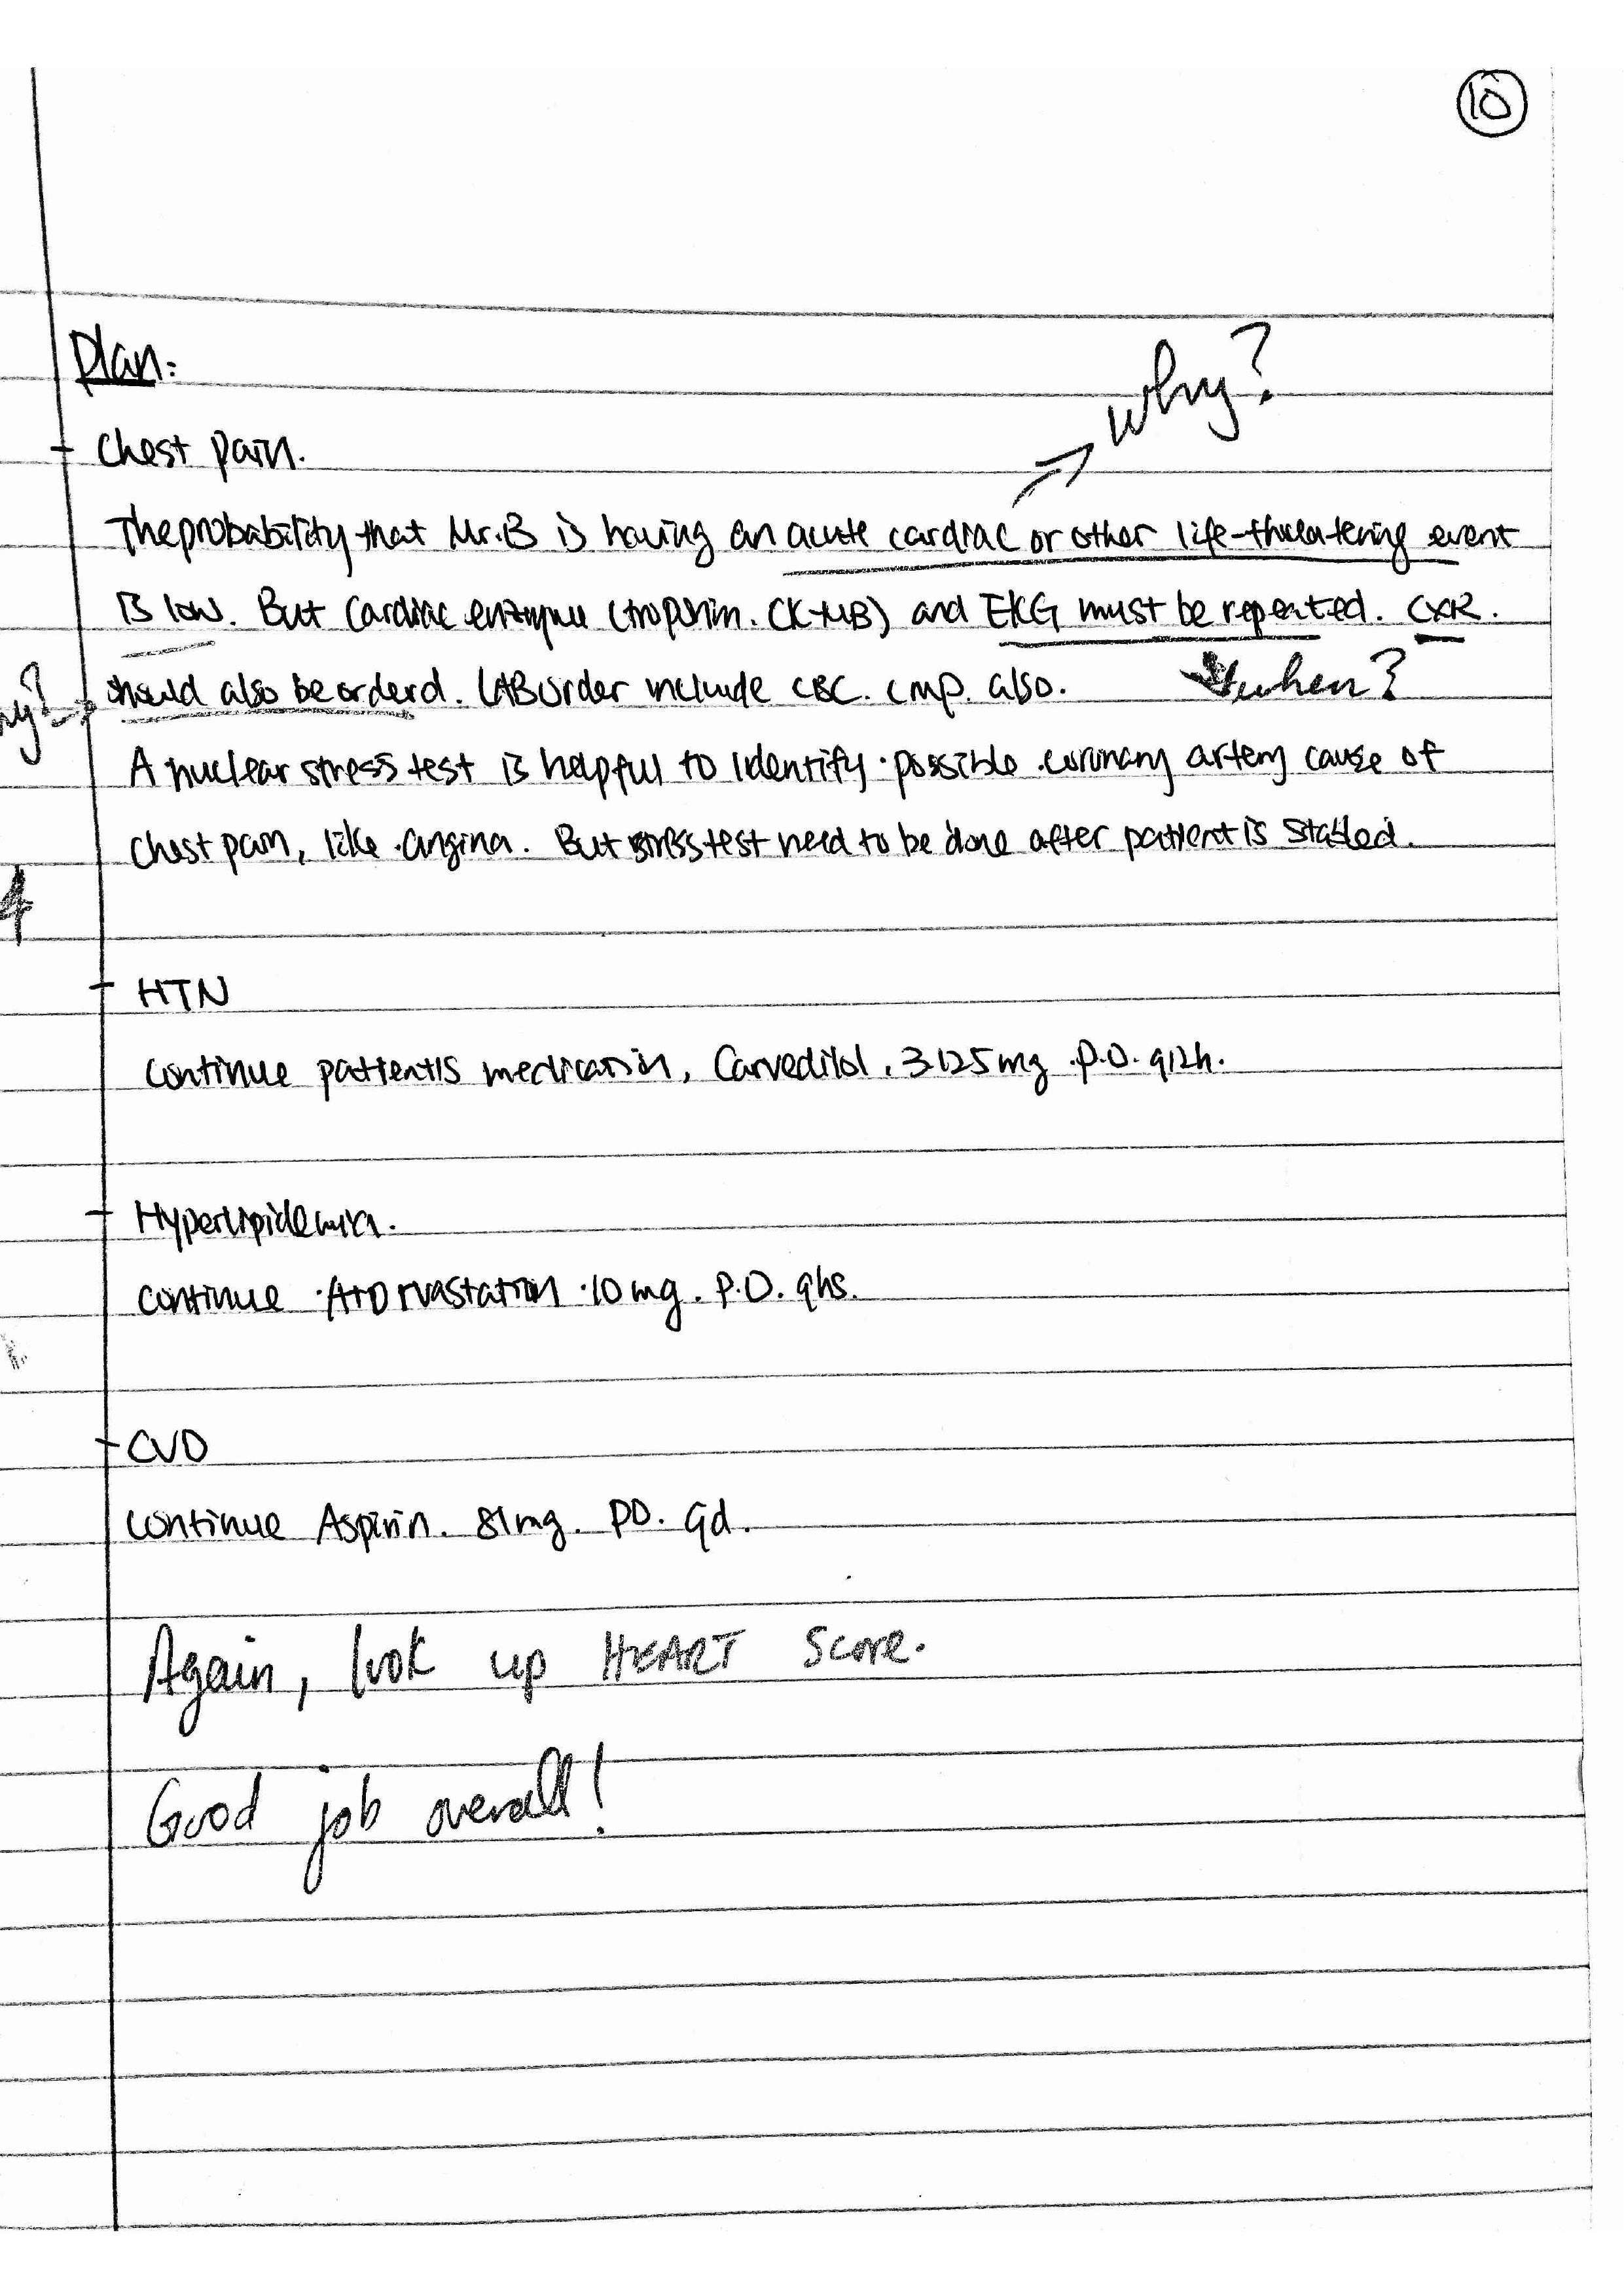 10
Plan:
why?
- Chest pain.
The probability that Mr. B is having an acute cardiac or other life-threatening event
is low. But Cardiac enzyme (troponin. CK-MB) and EKG must be repeated. CXR.
when?
should also be orderd. LAB order include CBC. CMP. also.
A nuclear stress test is helpful to identify possible coronary artery cause of
chest pain, like angina. But stress test need to be done after patient is stabled.
4
- HTN
continue patient's medication, Carvedilol, 3.125 mg P.O. q12h.
- Hyperlipidemia.
continue Atorvastation 10 mg. P.O. qhs.
- CVD
continue Aspirin. 81mg. PO. qd.
Again, look up HEART Score.
Good job overall!